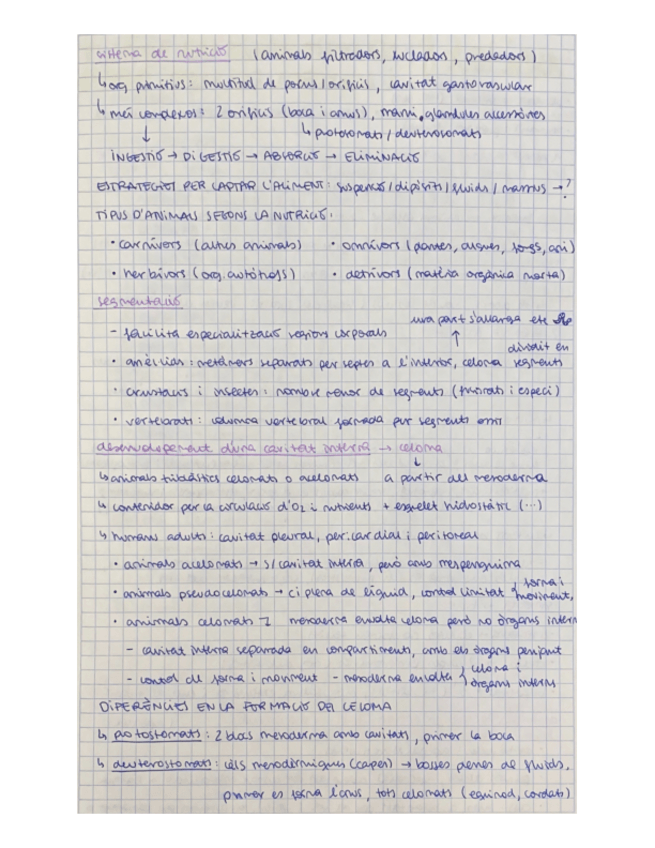 sistema de nutrició (animals filtradors, succadors, predadors)
↳ org primitius: multitud de porus/orificis, cavitat gastrovascular
↳ més complexos: 2 orificis (boca i anus), glàndules accessòries
↓ ↳ protostomats / deuterostomats
INGESTIÓ → DIGESTIÓ → ABSORCIÓ → ELIMINACIÓ
ESTRATEGIES PER CAPTAR L'ALIMENT: suspensió / dipòsits / fluids / massius → ?
TIPUS D'ANIMALS SEGONS LA NUTRICIÓ:
• carnívors (altres animals) • omnívors (plantes, algues, fongs, ani)
• herbívors (org. autòtrofs) • detrívors (matèria orgànica morta)
segmentació
una part s'allarga etc
- facilita especialització regions corporals ↑ dividit en
• anèl·lids: metàmers separats per septes a l'interior, celoma segments
• crustacis i insectes: nombre menor de segments (fusionats i especi)
• vertebrats: columna vertebral formada per segments ossis
desenvolupament d'una cavitat interna → celoma
↓
↳ animals triblàstics celomats o acelomats a partir del mesoderma
↳ contenidor per la circulació d'O2 i nutrients + esquelet hidrostàtic (...)
↳ humans adults: cavitat pleural, pericardial i peritoneal
• animals acelomats → s/cavitat interna, però amb mesenquima
• animals pseudocelomats → ci plena de líquid, control limitat { forma i
moviment.
• animals celomats mesoderma envolta celoma però no òrgans intern
- cavitat interna separada en compartiments, amb els òrgans penjant
- control de forma i moviment - mesoderma envolta { celoma i
òrgans interns
DIFERÈNCIES EN LA FORMACIÓ DEL CELOMA
↳ protostomats: 2 blocs mesoderma amb cavitats, primer la boca
↳ deuterostomats: cèls mesodèrmiques (capes) → bosses plenes de fluids.
primer es forma l'anus, tots celomats (equinod, cordats)